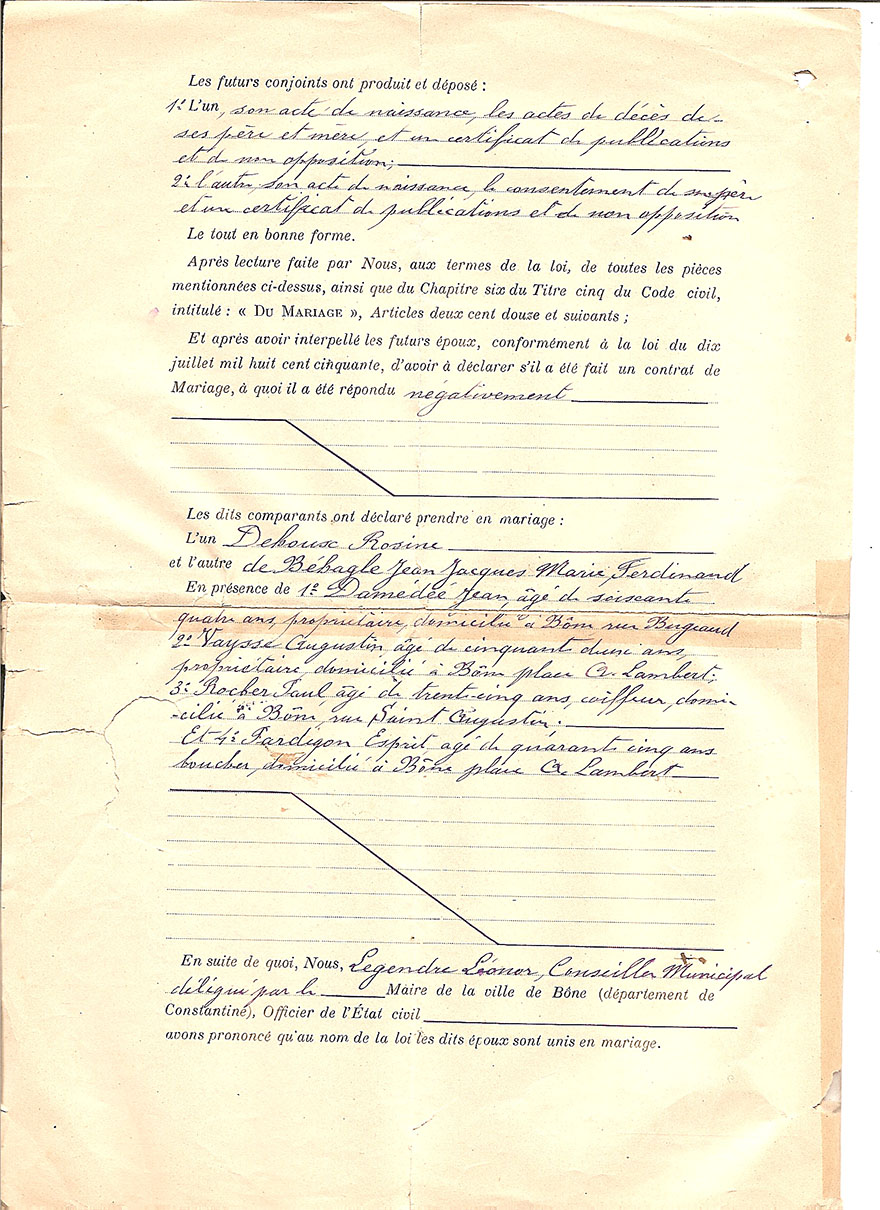 Les futurs conjoints ont produit et déposé :
1º L'un, son acte de naissance, les actes de décès de
ses père et mère, et un certificat de publications
et de non opposition;
2º l'autre, son acte de naissance, le consentement de son père
et un certificat de publications et de non opposition
Le tout en bonne forme.
Après lecture faite par Nous, aux termes de la loi, de toutes les pièces
mentionnées ci-dessus, ainsi que du Chapitre six du Titre cinq du Code civil,
intitulé : « DU MARIAGE », Articles deux cent douze et suivants ;
Et après avoir interpellé les futurs époux, conformément à la loi du dix
juillet mil huit cent cinquante, d'avoir à déclarer s'il a été fait un contrat de
Mariage, à quoi il a été répondu négativement
Les dits comparants ont déclaré prendre en mariage :
L'un Dehouse Rosine
et l'autre de Béhagle Jean Jacques Marie, Ferdinand
En présence de 1º Damédée Jean, âgé de soixante
quatre ans, propriétaire, domicilié à Bône rue Bugeaud
2º Vaysse Augustin âgé de cinquante deux ans,
propriétaire, domicilié à Bône place A. Lambert;
3º Rocher Paul âgé de trente-cinq ans, coiffeur, domi-
-cilié à Bône, rue Saint Augustin.
Et 4º Fardigon Esprit, âgé de quarante cinq ans
boucher, domicilié à Bône place A. Lambert
En suite de quoi, Nous, Legendre Léonor, Conseiller Municipal
délégué par le Maire de la ville de Bône (département de
Constantine), Officier de l'État civil
avons prononcé qu'au nom de la loi les dits époux sont unis en mariage.